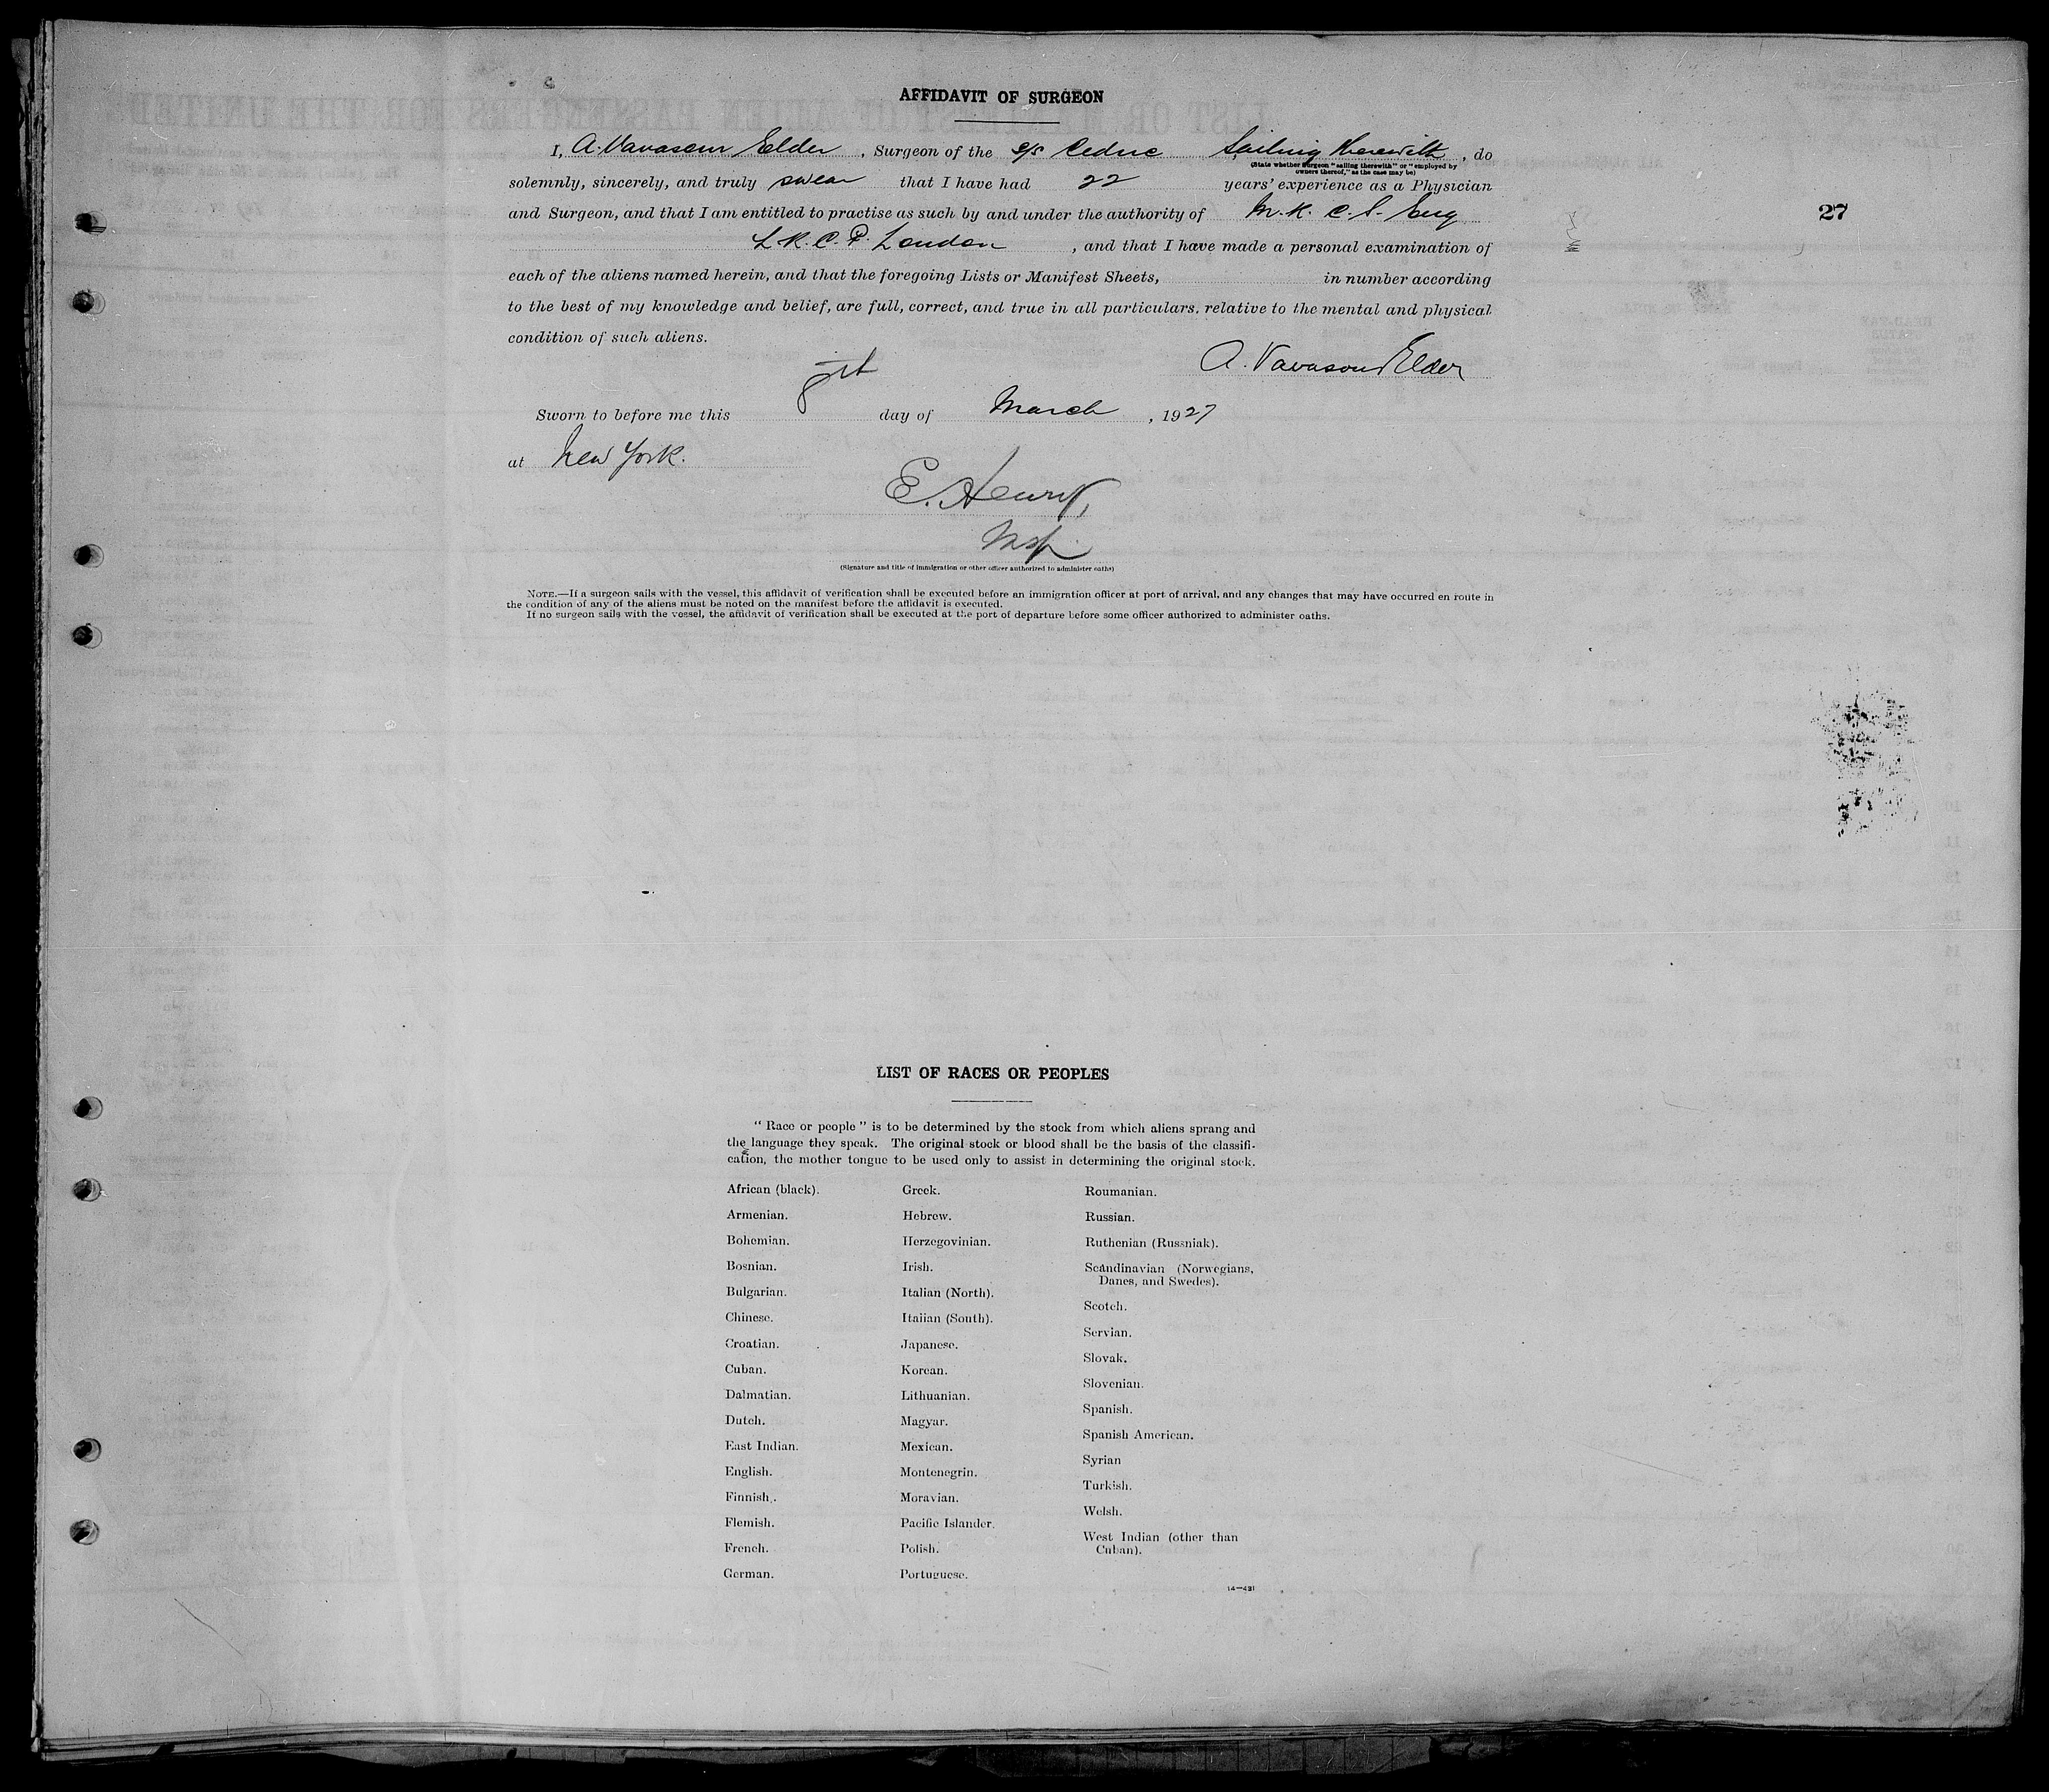 AFFIDAVIT OF SURGEON
I, A. Vavasour Elder, Surgeon of the S/S Cedric Sailing Therewith, do
(State whether Surgeon "sailing therewith" or "employed by
owners thereof," as the case may be)
solemnly, sincerely, and truly swear that I have had 22 years' experience as a Physician
and Surgeon, and that I am entitled to practise as such by and under the authority of M.R.C.S. Eng
27
L.R.C.P. London, and that I have made a personal examination of
each of the aliens named herein, and that the foregoing Lists or Manifest Sheets, in number according
to the best of my knowledge and belief, are full, correct, and true in all particulars, relative to the mental and physical
condition of such aliens.
A. Vavasour Elder
Sworn to before me this day of March, 1927
at New York.
E. Henry,
Insp.
(Signature and title of immigration or other officer authorized to administer oaths)
NOTE.—If a surgeon sails with the vessel, this affidavit of verification shall be executed before an immigration officer at port of arrival, and any changes that may have occurred en route in
the condition of any of the aliens must be noted on the manifest before the affidavit is executed.
If no surgeon sails with the vessel, the affidavit of verification shall be executed at the port of departure before some officer authorized to administer oaths.
LIST OF RACES OR PEOPLES
"Race or people" is to be determined by the stock from which aliens sprang and
the language they speak. The original stock or blood shall be the basis of the classifi-
cation, the mother tongue to be used only to assist in determining the original stock.
African (black).
Armenian.
Bohemian.
Bosnian.
Bulgarian.
Chinese.
Croatian.
Cuban.
Dalmatian.
Dutch.
East Indian.
English.
Finnish.
Flemish.
French.
German.
Greek.
Hebrew.
Herzegovinian.
Irish.
Italian (North).
Italian (South).
Japanese.
Korean.
Lithuanian.
Magyar.
Mexican.
Montenegrin.
Moravian.
Pacific Islander.
Polish.
Portuguese.
Roumanian.
Russian.
Ruthenian (Russniak).
Scandinavian (Norwegians,
Danes, and Swedes).
Scotch.
Servian.
Slovak.
Slovenian.
Spanish.
Spanish American.
Syrian
Turkish.
Welsh.
West Indian (other than
Cuban).
14—421